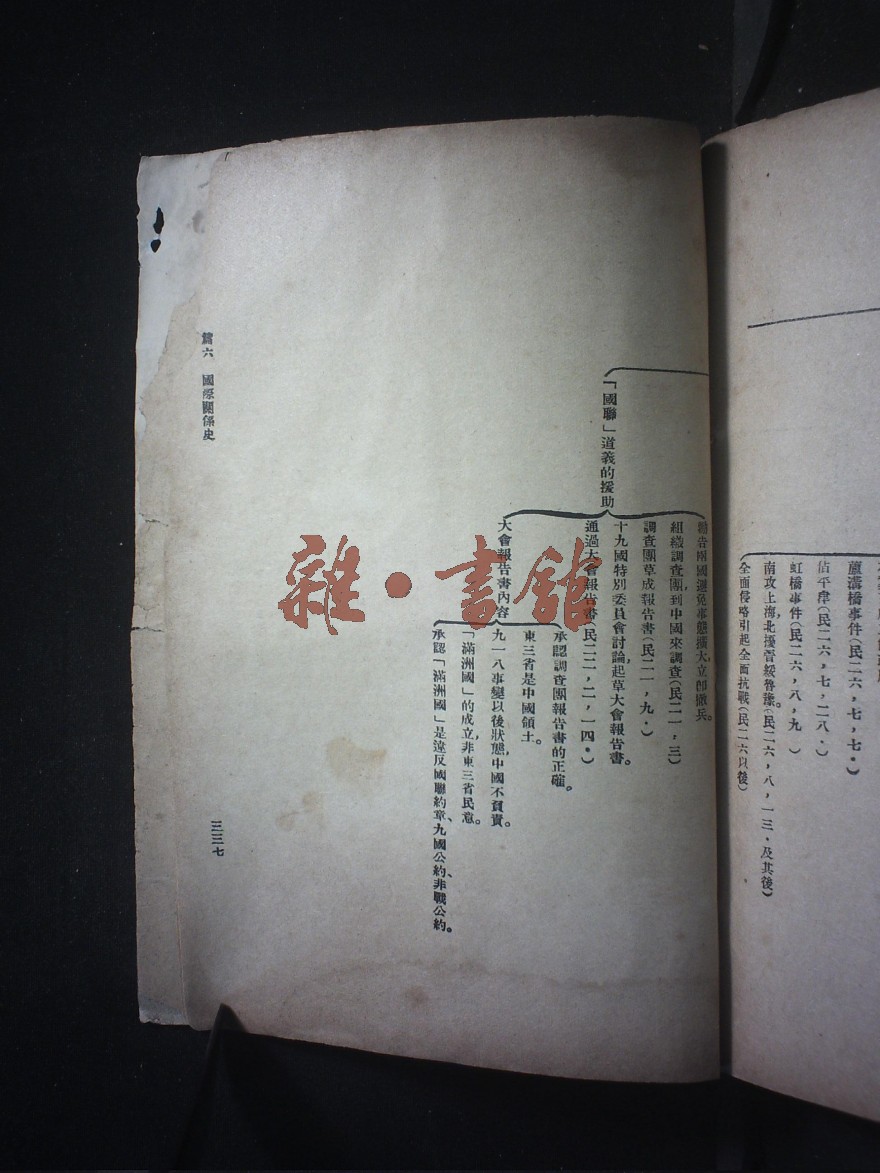 蘆溝橋事件(民二六,七,七。)
佔平津(民二六,七,二八。)
虹橋事件(民二六,八,九 )
南攻上海,北擾晉綏魯豫。(民二六,八,一三。及其後)
全面侵略引起全面抗戰(民二六以後)
「國聯」道義的援助
勸告兩國避免事態擴大,立卽撤兵。
組織調查團,到中國來調查(民二一,三)
調查團草成報告書(民二一,九。)
十九國特別委員會討論,起草大會報告書。
通過大會報告書(民二二,二,一四。)
大會報告書內容
承認調查團報告書的正確。
東三省是中國領土。
九一八事變以後狀態,中國不負責。
「滿洲國」的成立,非東三省民意。
承認「滿洲國」是違反國聯約章、九國公約、非戰公約。
篇六 國際關係史
三三七
雜·書館